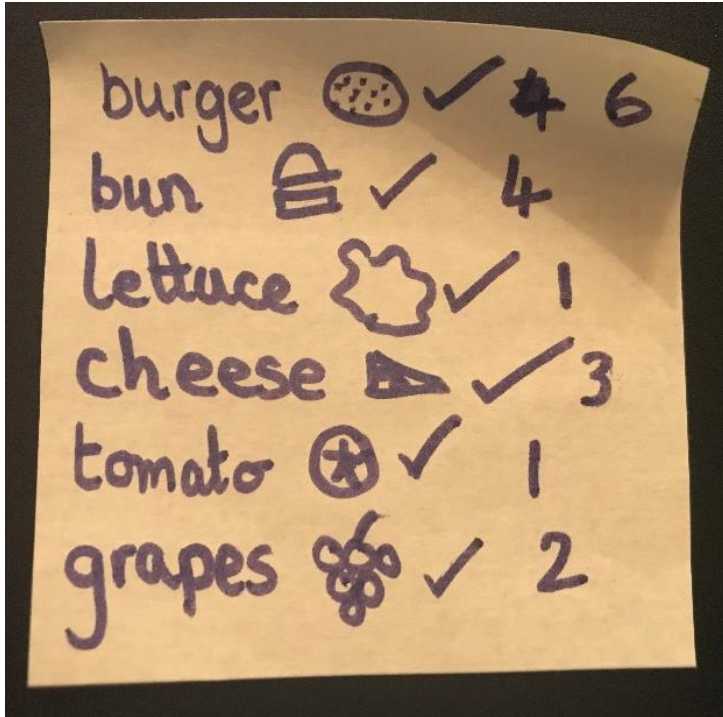 burger ✓ 4 6
bun ✓ 4
lettuce ✓ 1
cheese ✓ 3
tomato ✓ 1
grapes ✓ 2